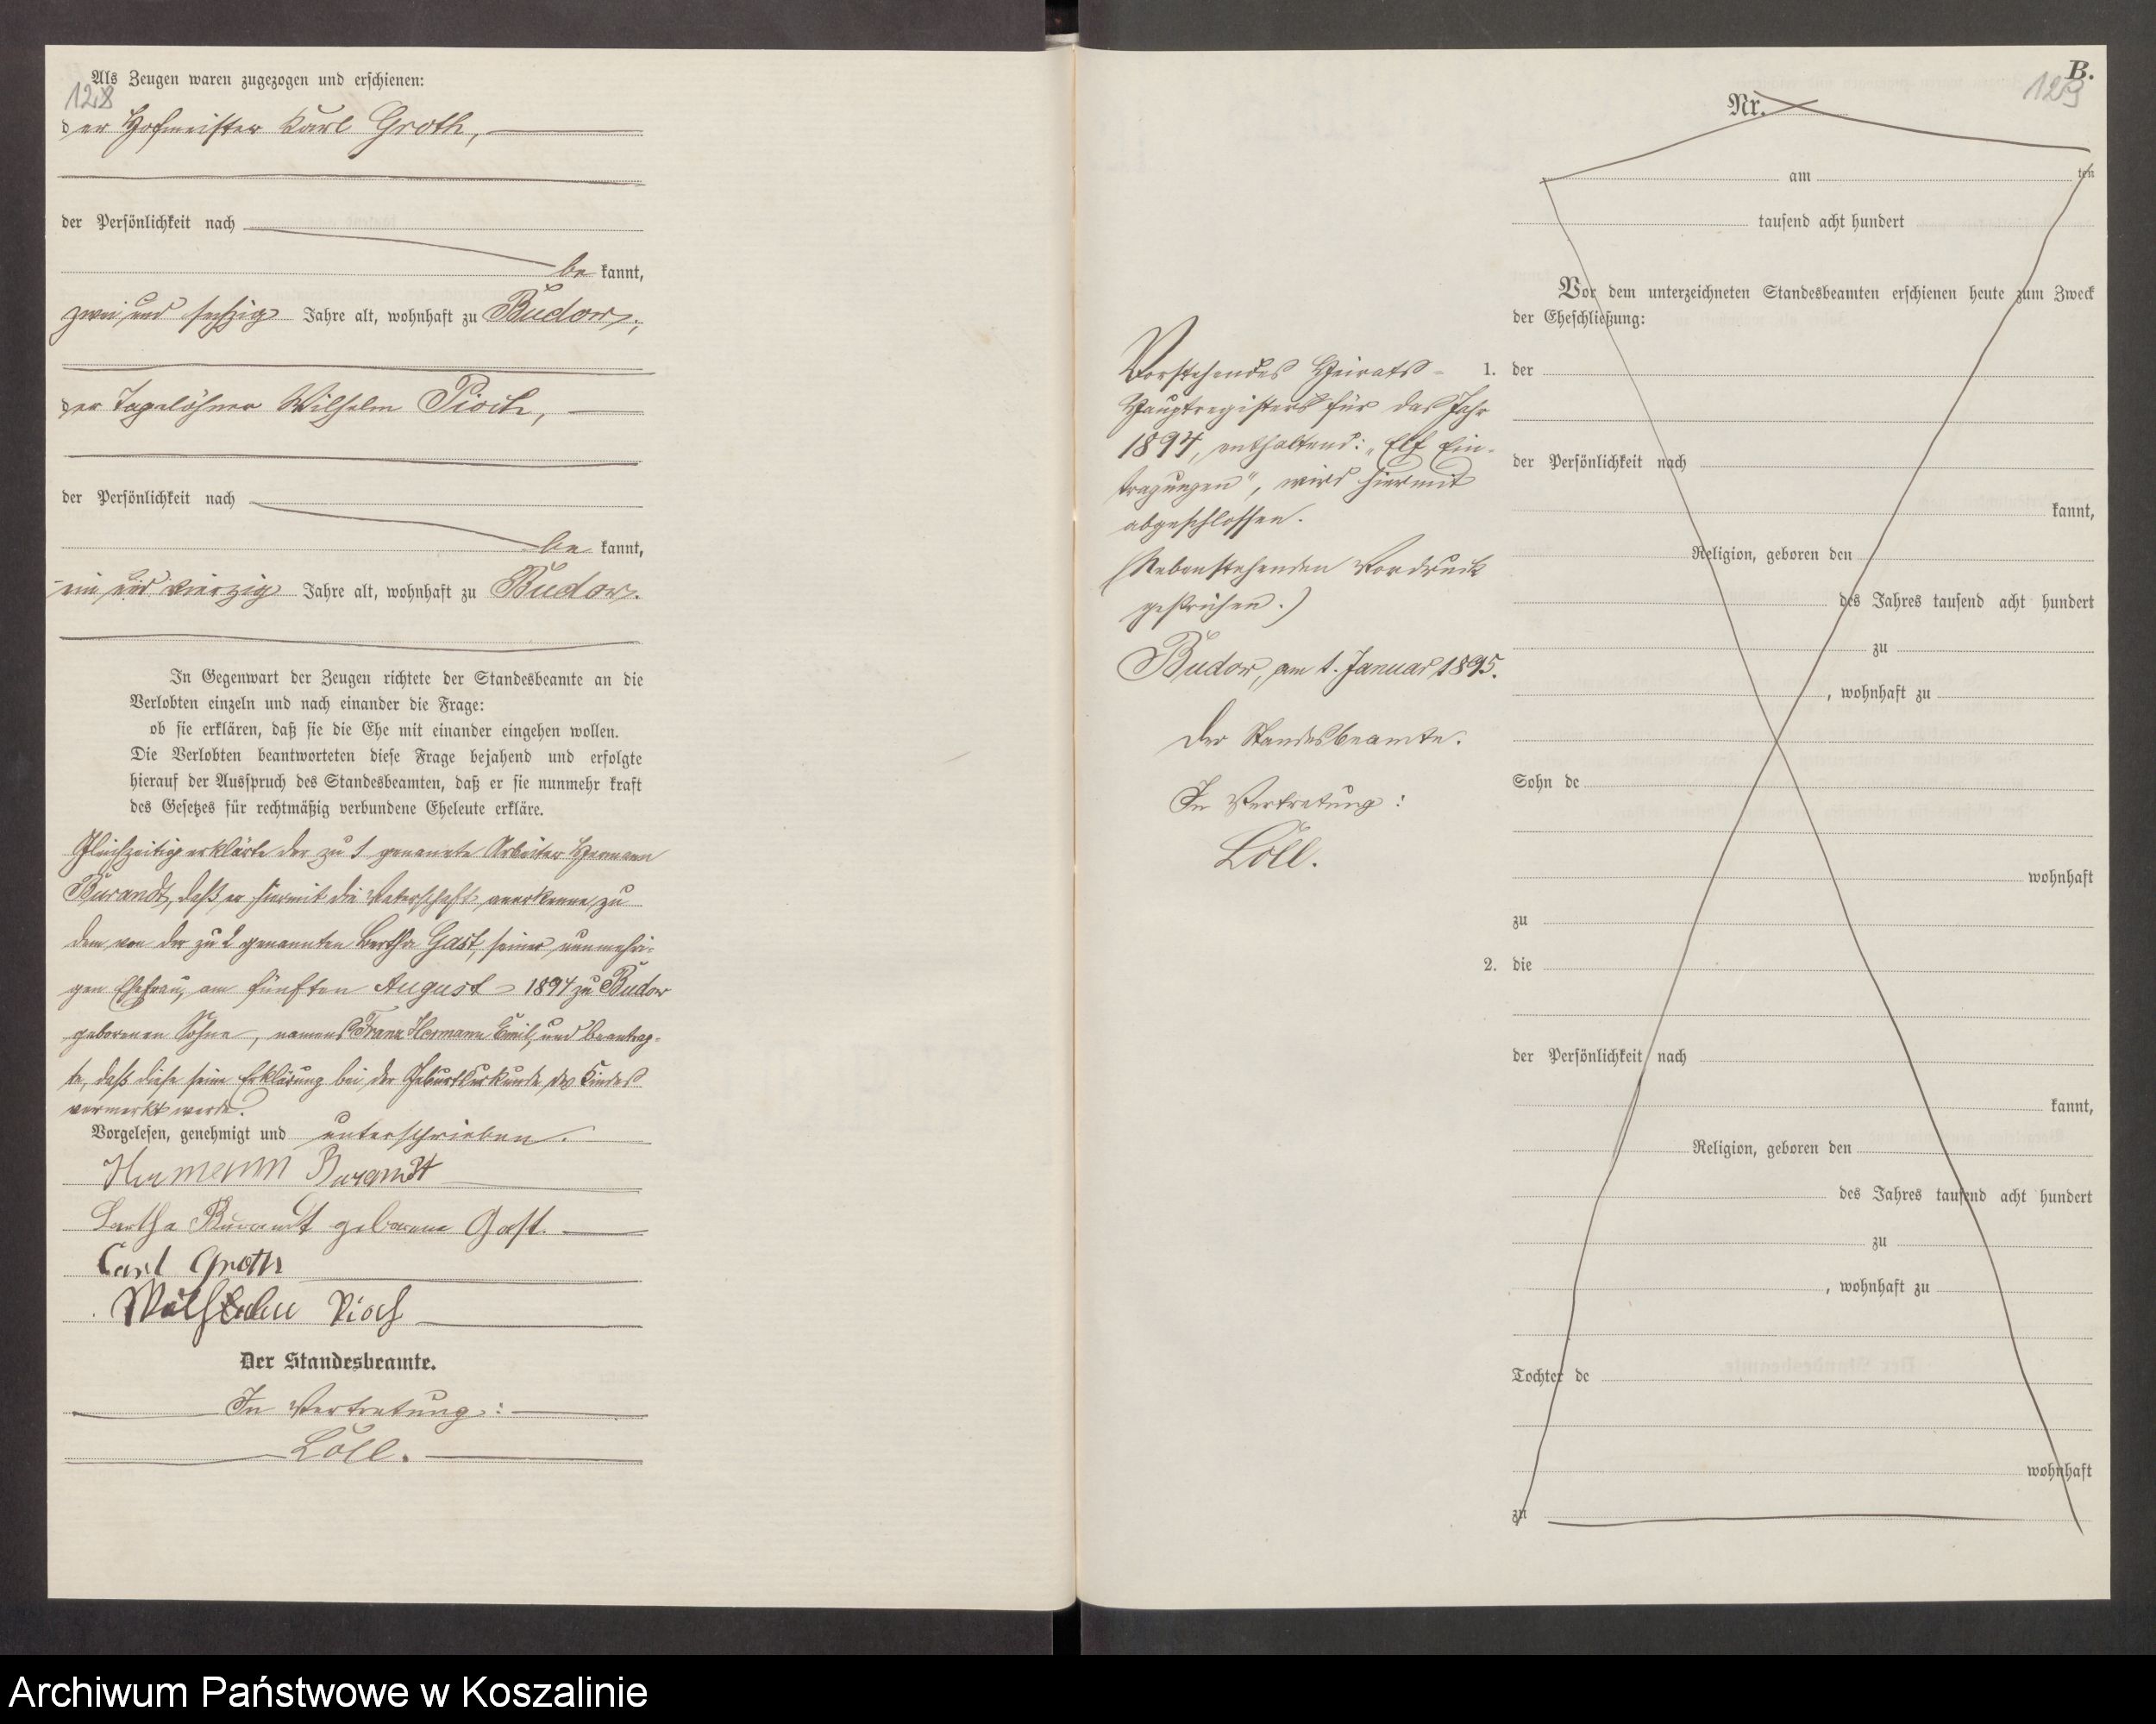 Als Zeugen waren zugezogen und erschienen:
128
der Hofmeister Karl Groth,
der Persönlichkeit nach
be kannt,
zwei und sechzig Jahre alt, wohnhaft zu Budow;
der Tagelöhner Wilhelm Pioch,
der Persönlichkeit nach
be kannt,
ein und vierzig Jahre alt, wohnhaft zu Budow.
In Gegenwart der Zeugen richtete der Standesbeamte an die
Verlobten einzeln und nach einander die Frage:
ob sie erklären, daß sie die Ehe mit einander eingehen wollen.
Die Verlobten beantworteten diese Frage bejahend und erfolgte
hierauf der Ausspruch des Standesbeamten, daß er sie nunmehr kraft
des Gesetzes für rechtmäßig verbundene Eheleute erkläre.
Gleichzeitig erklärte der zu 1 genannte Arbeiter Hermann
Burandt, daß er hiermit die Vaterschaft anerkenne zu
dem von der zu 2 genannten Bertha Gast, seiner nunmehri-
gen Ehefrau, am fünften August 1894 zu Budow
geborenen Sohne, namens Franz Hermann Emil, und beantrag-
te, daß diese seine Erklärung bei der Geburtsurkunde des Kindes
vermerkt werde.
Vorgelesen, genehmigt und unterschrieben.
Hermann Burandt
Bertha Burandt geborene Gast.
Carl Groth
Wilhelm Pioch
Der Standesbeamte.
In Vertretung:
Löll.
B.
129
Nr.
am ten
tausend acht hundert
Vor dem unterzeichneten Standesbeamten erschienen heute zum Zweck
der Eheschließung:
1. der
der Persönlichkeit nach
kannt,
Religion, geboren den
des Jahres tausend acht hundert
zu
, wohnhaft zu
Sohn de
wohnhaft
zu
2. die
der Persönlichkeit nach
kannt,
Religion, geboren den
des Jahres tausend acht hundert
zu
, wohnhaft zu
Tochter de
wohnhaft
zu
Vorstehendes Heirats-
Hauptregister für das Jahr
1894, enthaltend: „Elf Ein-
tragungen", wird hiermit
abgeschlossen.
(Nebenstehenden Vordruck
gestrichen.)
Budow, am 1. Januar 1895.
Der Standesbeamte.
In Vertretung:
Löll.
Archiwum Państwowe w Koszalinie